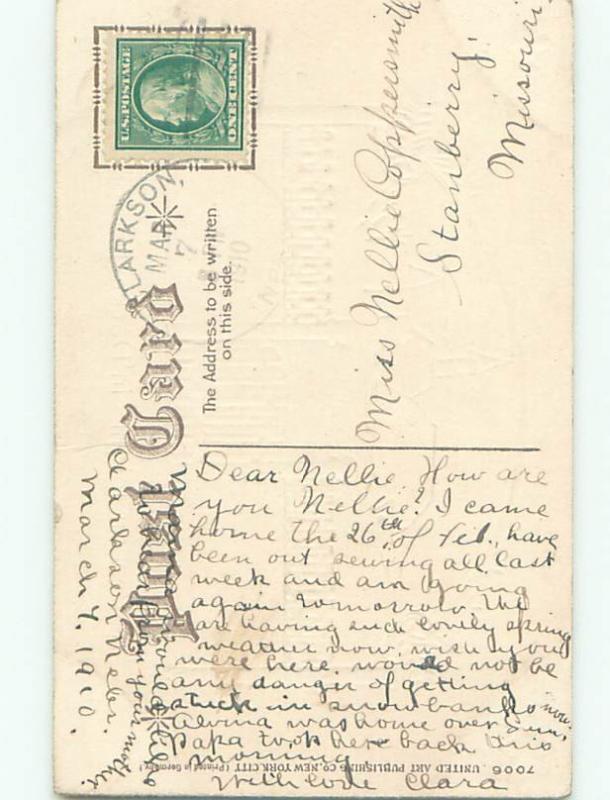 U.S. POSTAGE
ONE CENT
CLARKSON
MAR
7
1910
Post Card
The Address to be written
on this side.
Miss Nellie Coppersmith
Stanberry
Missouri.
Clarkson Nebr.
March 7, 1910.
Dear Nellie, How are
you Nellie? I came
home the 26th of Feb., have
been out sewing all last
week and am going
again tomorrow. We
are having such lovely spring
weather now, wish you
were here. would not be
any danger of getting
stuck in snow banks now.
Alvina was home over Sun.
Papa took her back this
morning
With love Clara
Mama would like
to hear from your mother.
7006. UNITED ART PUBLISHING CO. NEW YORK CITY (Printed in Germany)